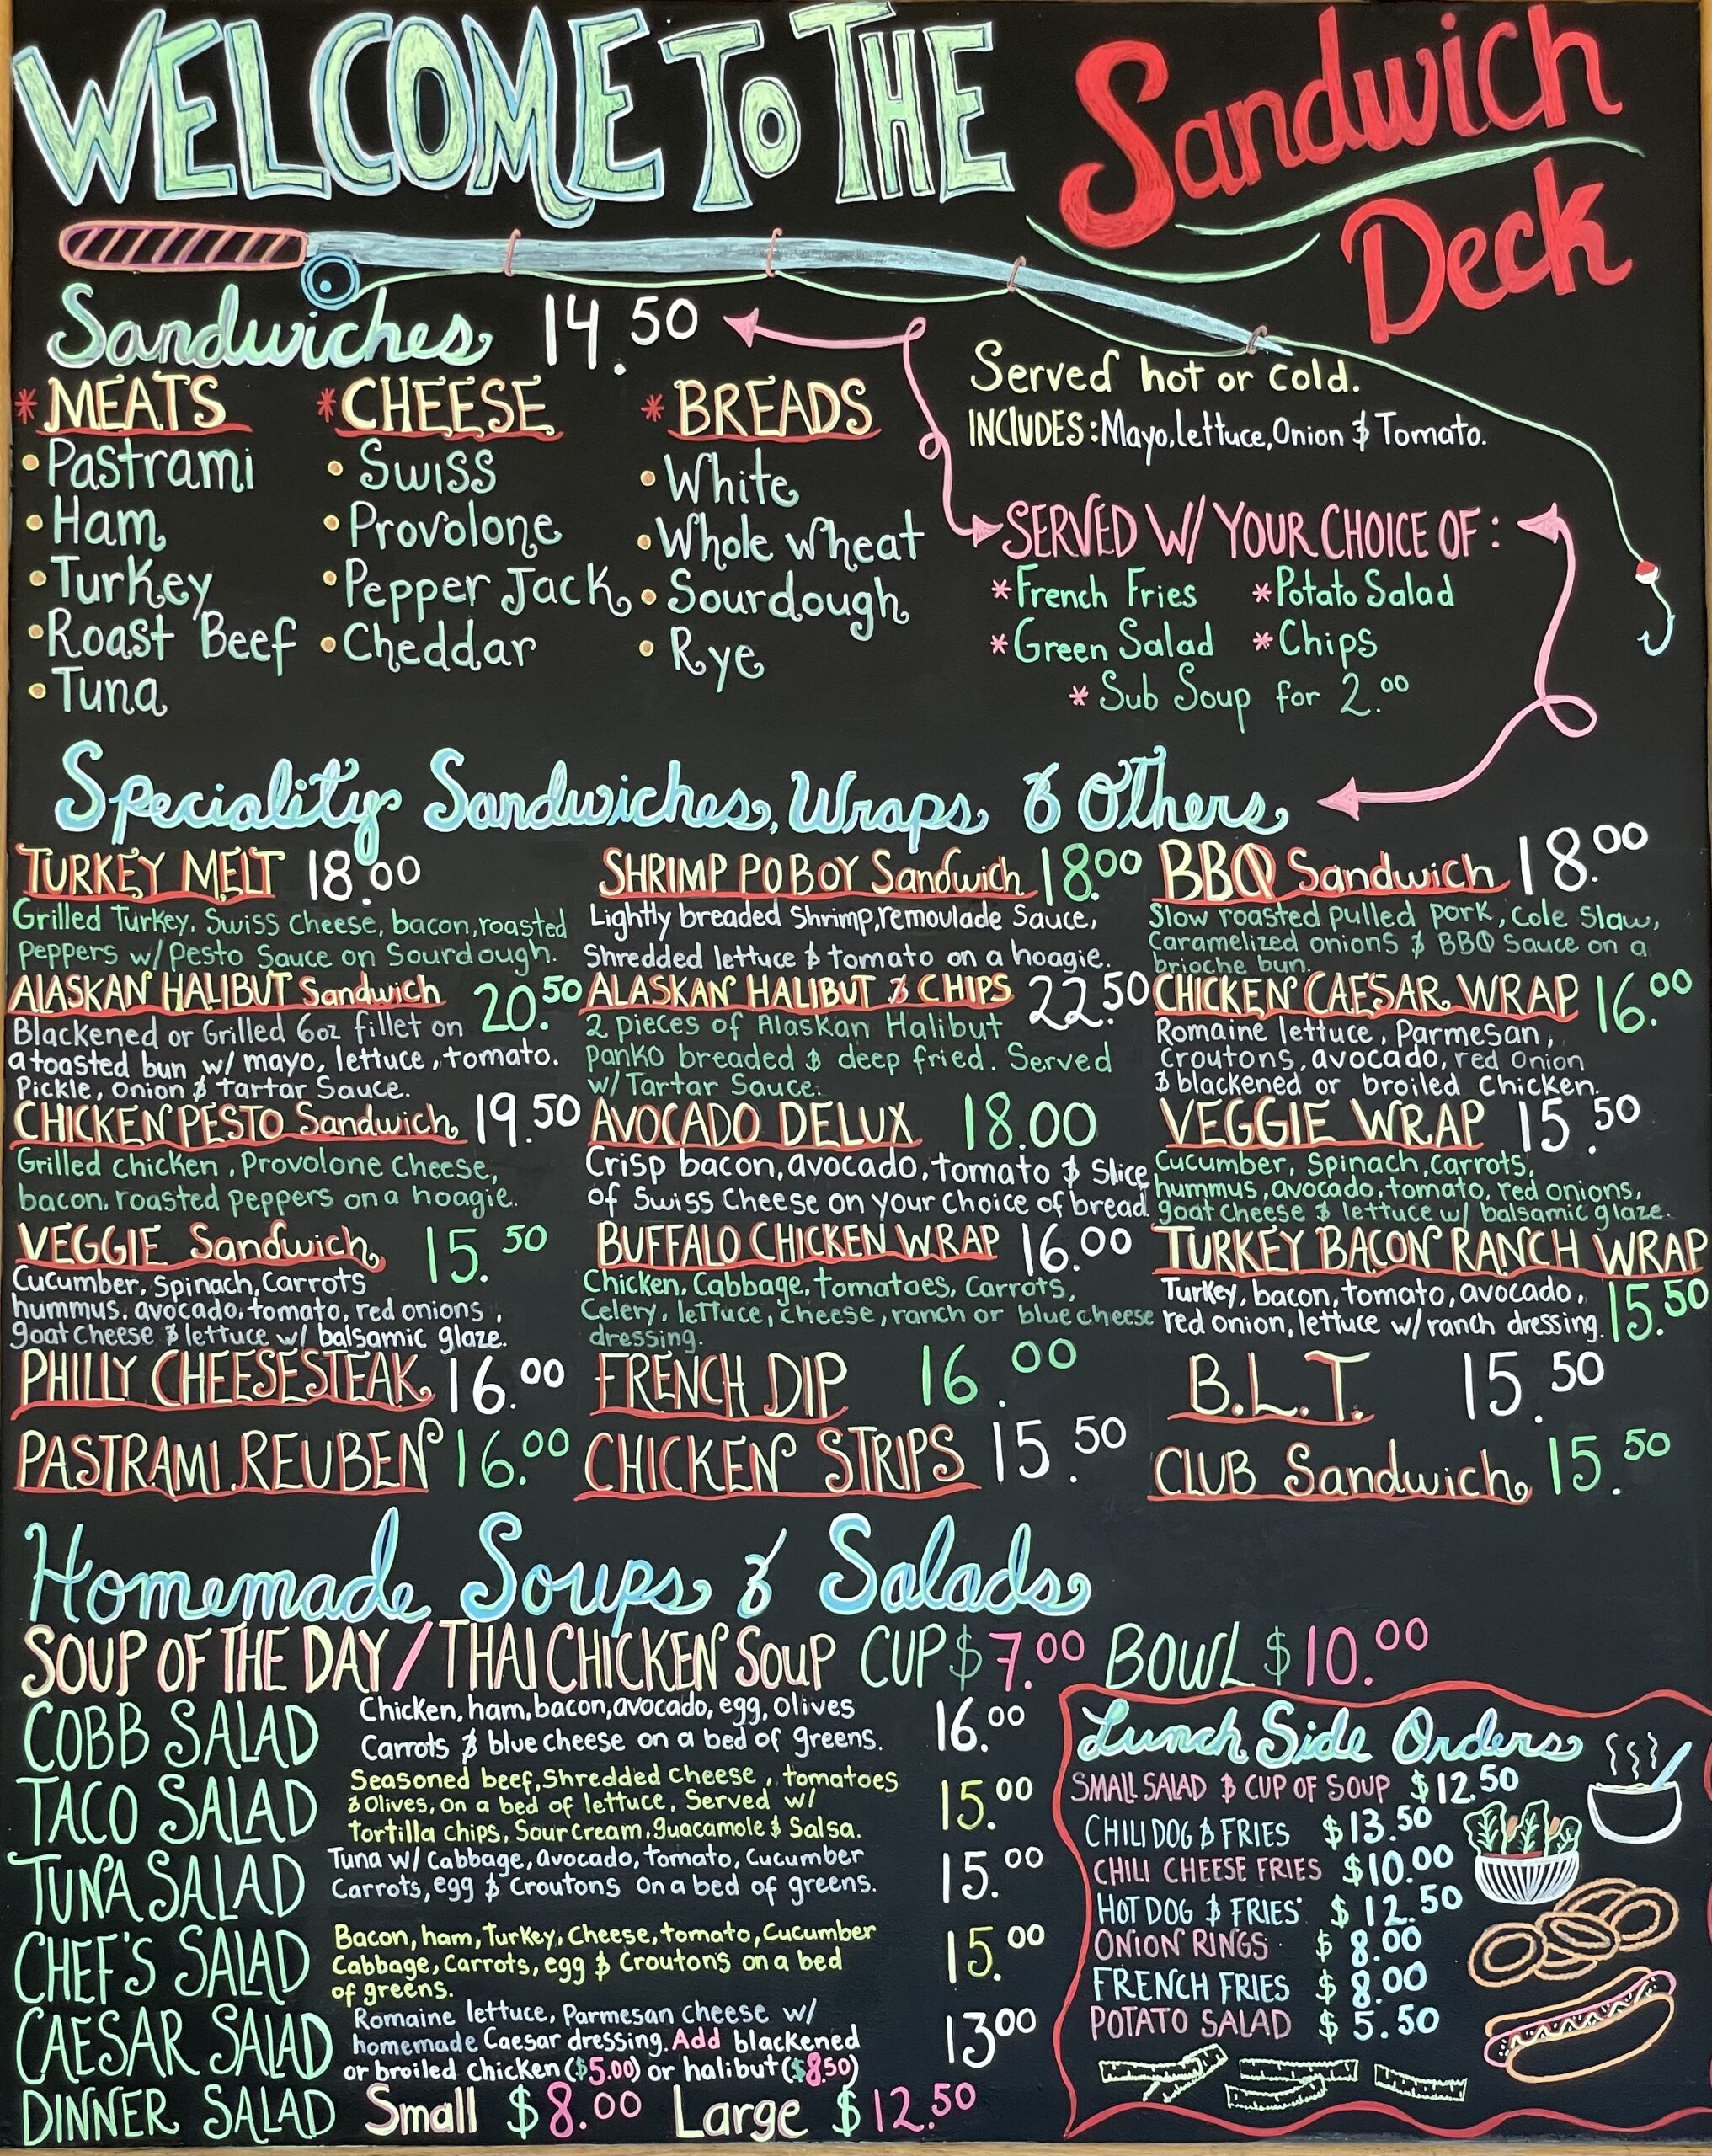 WELCOME TO THE
Sandwich
Deck
Sandwiches 14.50
Served hot or cold.
INCLUDES: Mayo, lettuce, Onion & Tomato.
* MEATS
• Pastrami
• Ham
• Turkey
• Roast Beef
• Tuna
* CHEESE
• Swiss
• Provolone
• Pepper Jack
• Cheddar
* BREADS
• White
• Whole Wheat
• Sourdough
• Rye
SERVED W/ YOUR CHOICE OF:
* French Fries * Potato Salad
* Green Salad * Chips
* Sub Soup for 2.00
Speciality Sandwiches, Wraps & Others
TURKEY MELT 18.00
Grilled Turkey, Swiss Cheese, bacon, roasted
Peppers w/ Pesto Sauce on Sourdough.
ALASKAN HALIBUT Sandwich 20.50
Blackened or Grilled 6oz fillet on
a toasted bun w/ mayo, lettuce, tomato.
Pickle, onion & tartar Sauce.
CHICKEN PESTO Sandwich 19.50
Grilled chicken, Provolone Cheese,
bacon, roasted peppers on a hoagie.
VEGGIE Sandwich 15.50
Cucumber, Spinach, Carrots
hummus, avocado, tomato, red onions,
goat cheese & lettuce w/ balsamic glaze.
PHILLY CHEESESTEAK 16.00
PASTRAMI REUBEN 16.00
SHRIMP PO BOY Sandwich 18.00
Lightly breaded Shrimp, remoulade Sauce,
Shredded lettuce & tomato on a hoagie.
ALASKAN HALIBUT & CHIPS 22.50
2 pieces of Alaskan Halibut
panko breaded & deep fried. Served
w/ Tartar Sauce.
AVOCADO DELUX 18.00
Crisp bacon, avocado, tomato & Slice
of Swiss Cheese on your Choice of bread.
BUFFALO CHICKEN WRAP 16.00
Chicken, Cabbage, tomatoes, Carrots,
Celery, lettuce, cheese, ranch or blue cheese
dressing.
FRENCH DIP 16.00
CHICKEN STRIPS 15.50
BBQ Sandwich 18.00
Slow roasted pulled pork, Cole Slaw,
Caramelized onions & BBQ Sauce on a
brioche bun.
CHICKEN CAESAR WRAP 16.00
Romaine lettuce, Parmesan,
Croutons, avocado, red onion
& blackened or broiled Chicken.
VEGGIE WRAP 15.50
Cucumber, Spinach, carrots,
hummus, avocado, tomato, red onions,
goat cheese & lettuce w/ balsamic glaze.
TURKEY BACON RANCH WRAP
Turkey, bacon, tomato, avocado,
red onion, lettuce w/ ranch dressing. 15.50
B.L.T. 15.50
CLUB Sandwich 15.50
Homemade Soups & Salads
SOUP OF THE DAY / THAI CHICKEN SOUP CUP $7.00 BOWL $10.00
COBB SALAD 16.00
Chicken, ham, bacon, avocado, egg, Olives
Carrots & blue cheese on a bed of greens.
TACO SALAD 15.00
Seasoned beef, Shredded Cheese, tomatoes
& Olives, on a bed of lettuce. Served w/
tortilla chips, Sour Cream, guacamole & Salsa.
TUNA SALAD 15.00
Tuna w/ Cabbage, avocado, tomato, Cucumber
Carrots, egg & Croutons on a bed of greens.
CHEF'S SALAD 15.00
Bacon, ham, Turkey, Cheese, tomato, Cucumber
Cabbage, Carrots, egg & Croutons on a bed
of greens.
CAESAR SALAD 13.00
Romaine lettuce, Parmesan cheese w/
homemade Caesar dressing. Add blackened
or broiled chicken ($5.00) or halibut ($8.50)
DINNER SALAD Small $8.00 Large $12.50
Lunch Side Orders
SMALL SALAD & CUP OF SOUP $12.50
CHILI DOG & FRIES $13.50
CHILI CHEESE FRIES $10.00
HOT DOG & FRIES $12.50
ONION RINGS $8.00
FRENCH FRIES $8.00
POTATO SALAD $5.50